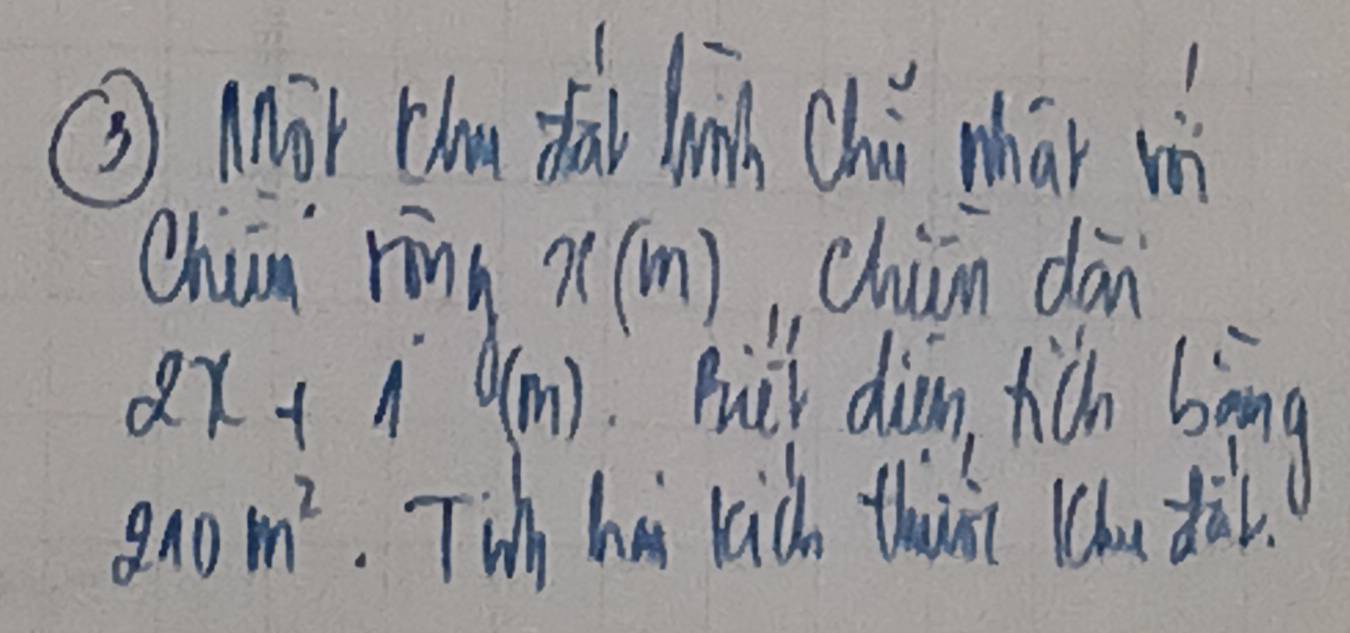 ③ Một khu đất hình chữ nhật với
chiều rộng x (m), chiều dài
2x + 1 (m). Biết diện tích bằng
210 m². Tính hai kích thước khu đất.